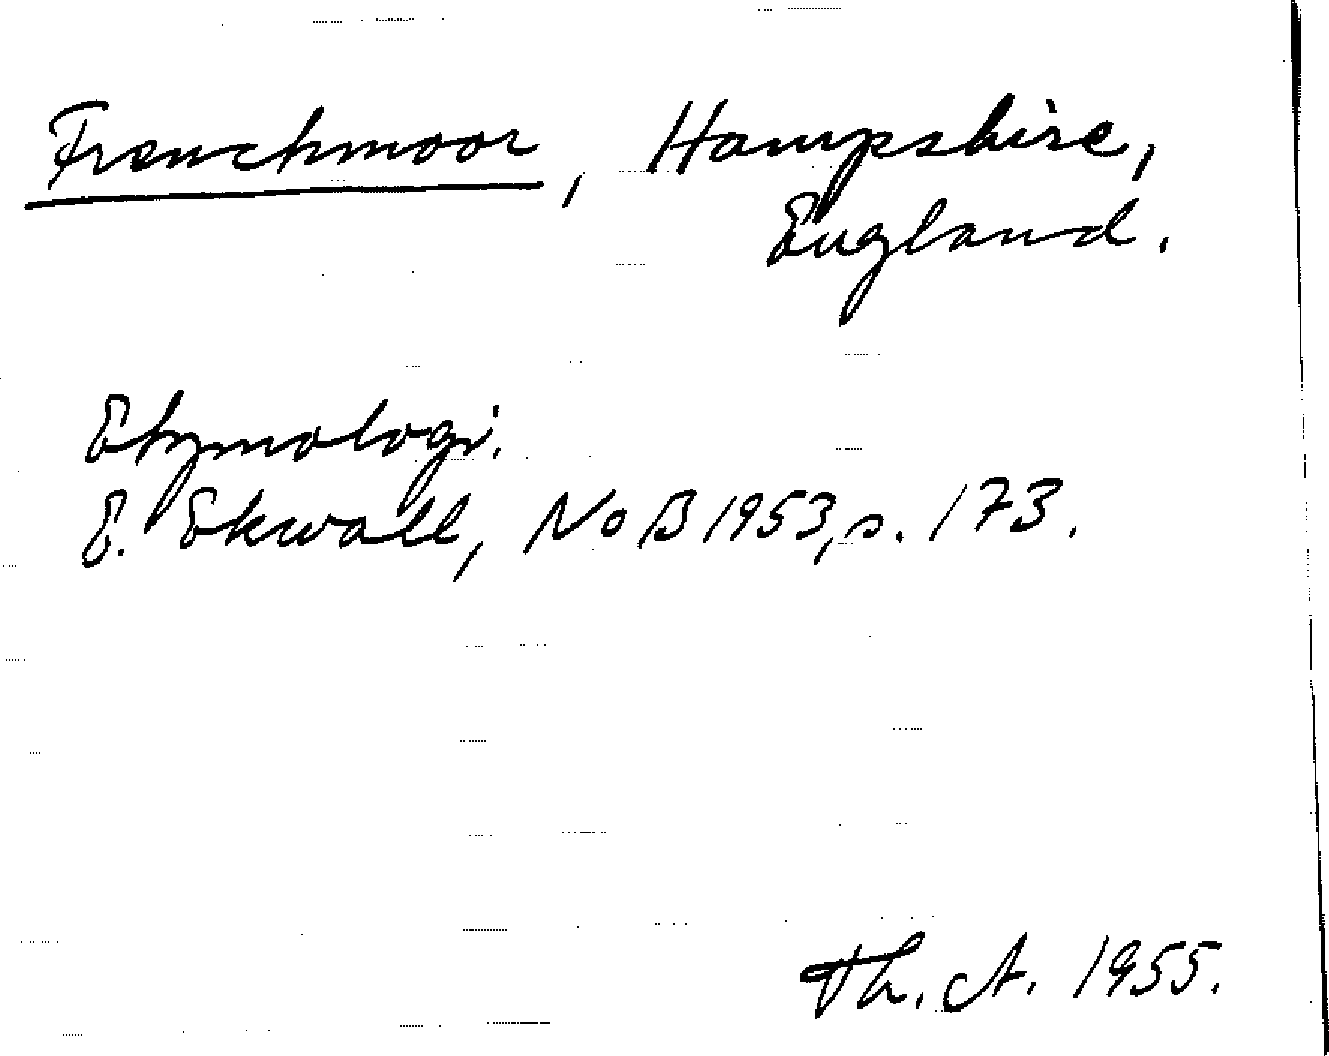 Frenchmoor, Hampshire,
England.
Etymologi.
E. Ekwall, NoB 1953, s. 173.
Th. A. 1955.